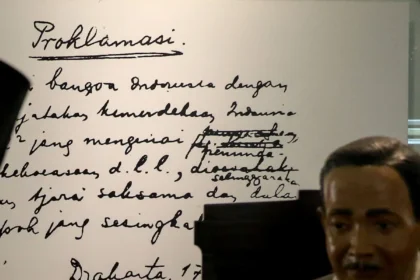 Proklamasi.
i bangsa Indonesia dengan
jatakan kemerdekaan Indonesia
² jang mengenai
kekoeasaan d.l.l., di
selenggaraka
tjara saksama dan dala
poh jang sesingka
Djakarta, 17